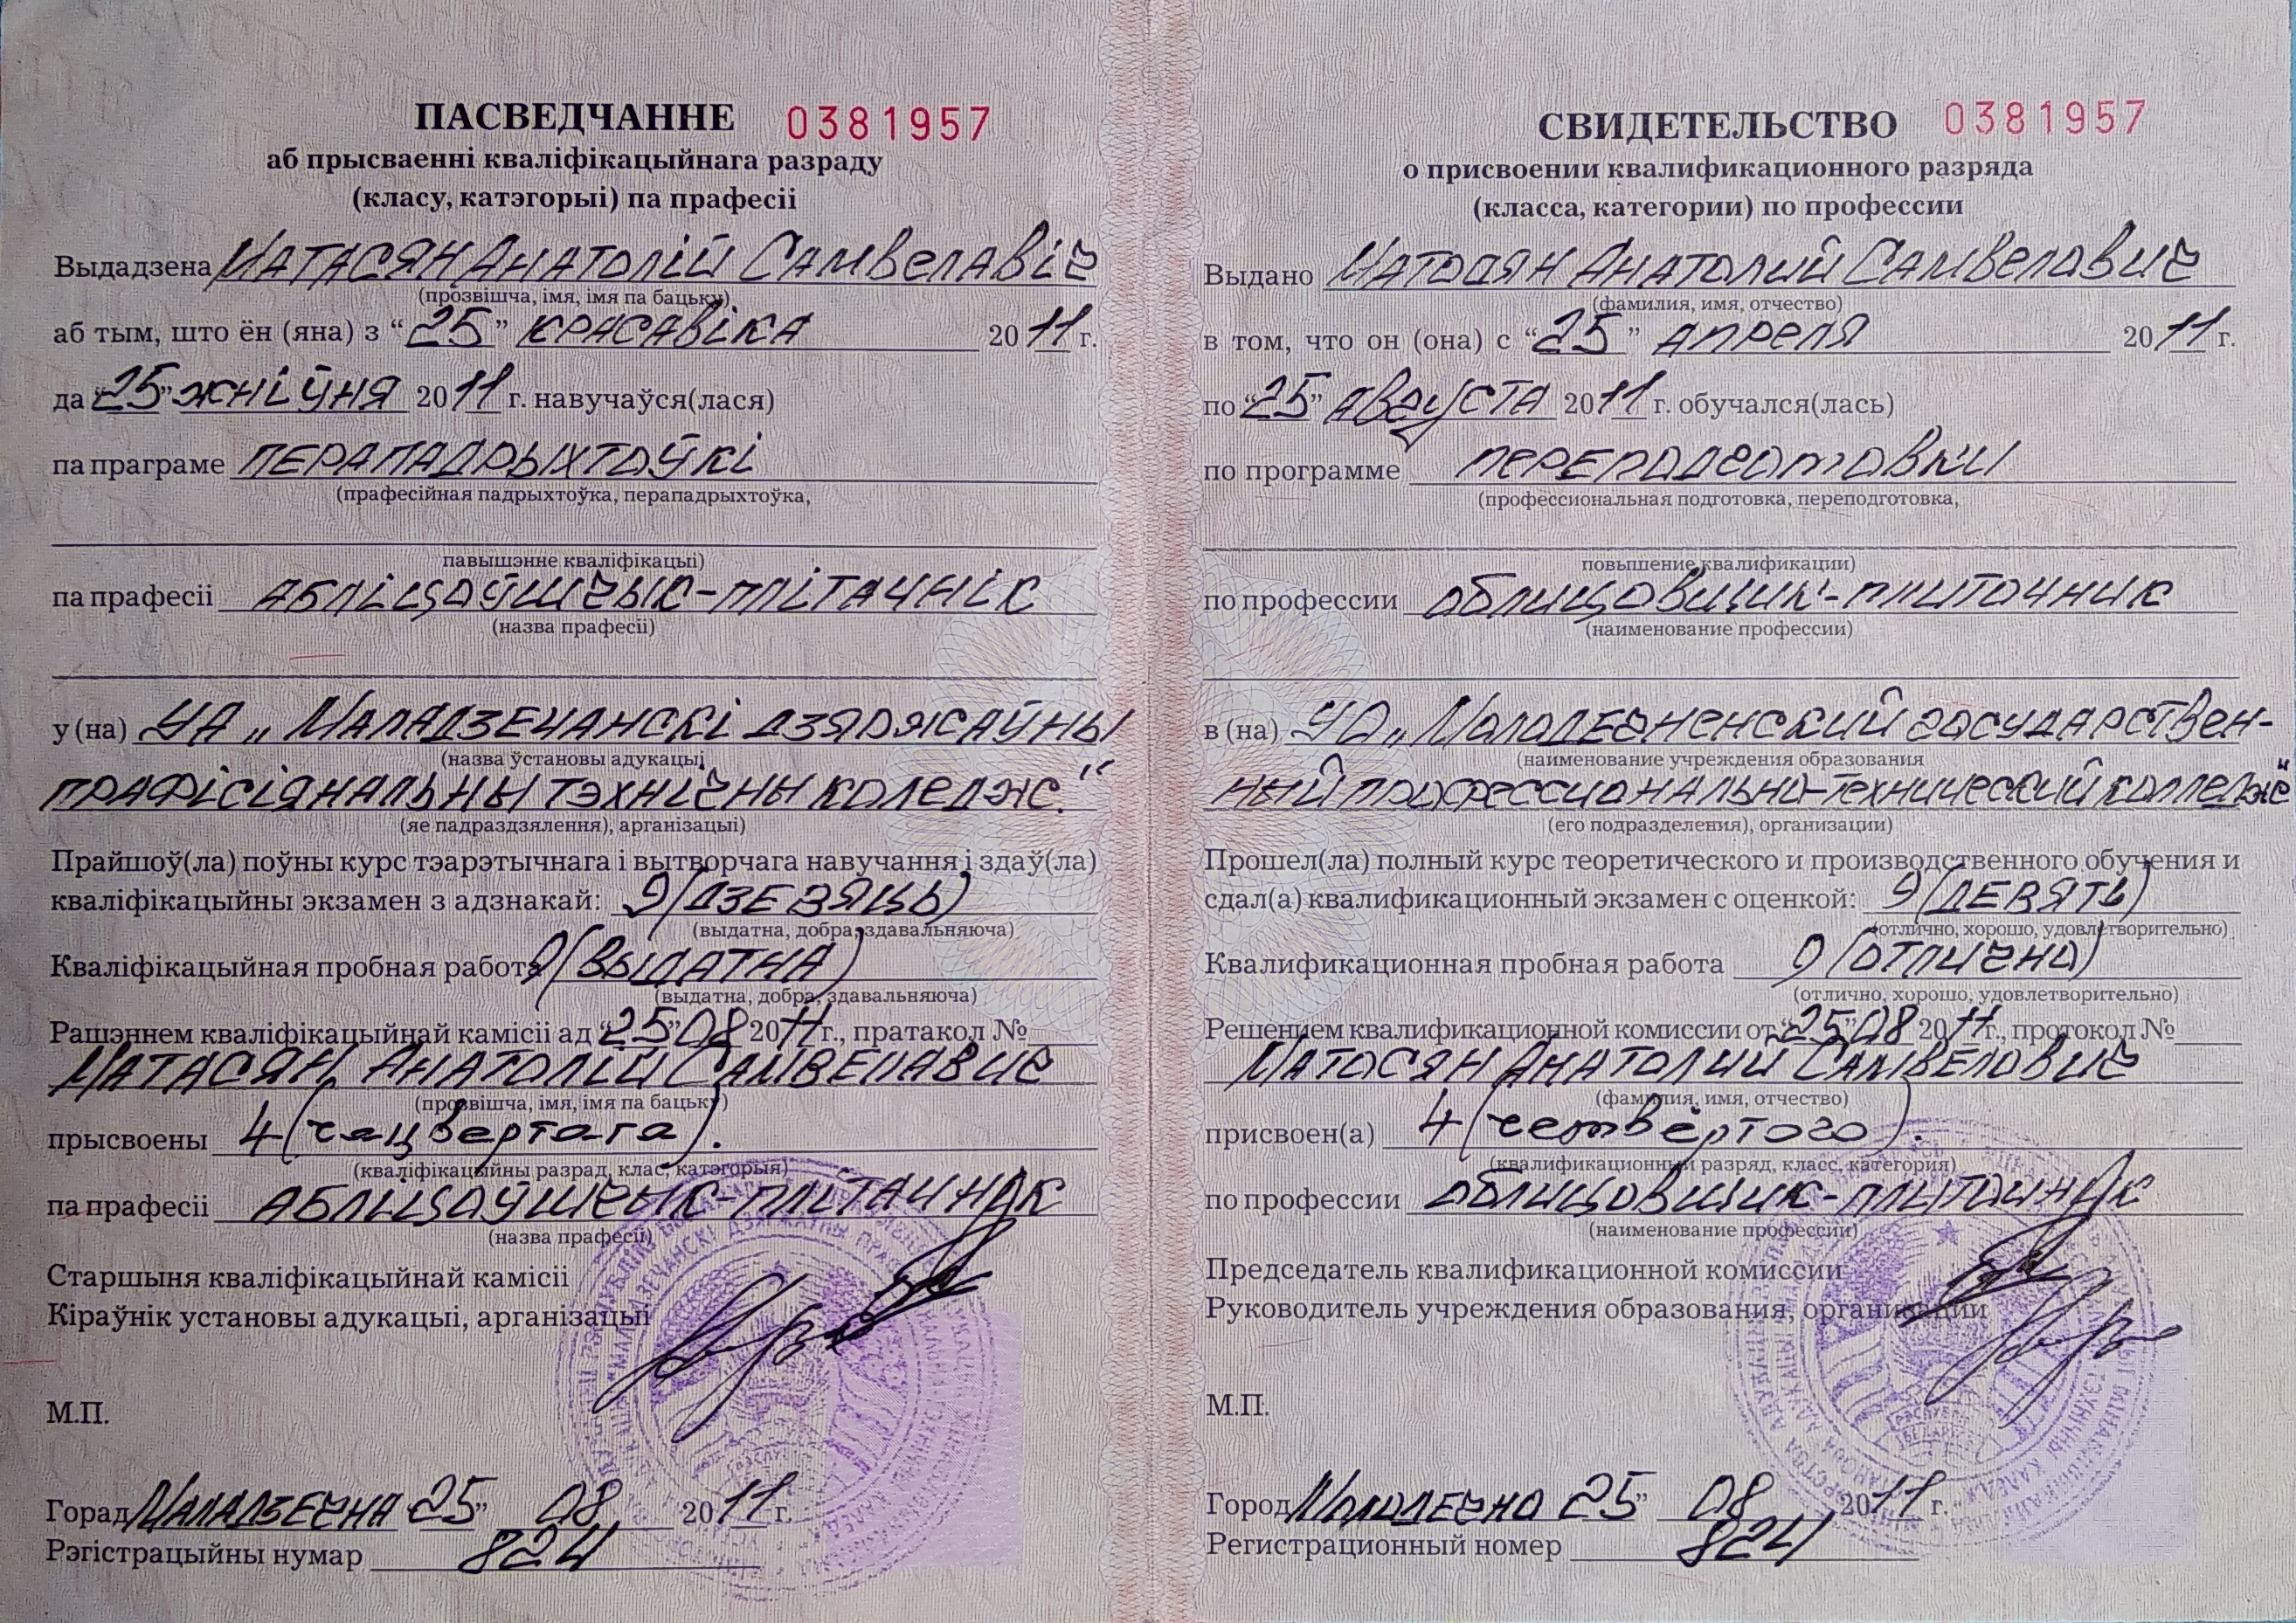 ПАСВЕДЧАННЕ 0381957
аб прысваенні кваліфікацыйнага разраду
(класу, катэгорыі) па прафесіі
Выдадзена Матасян Анатолій Самвелавіч
(прозвішча, імя, імя па бацьку)
аб тым, што ён (яна) з “25” красавіка 2011 г.
да “25” жніўня 2011 г. навучаўся(лася)
па праграме перападрыхтоўкі
(прафесійная падрыхтоўка, перападрыхтоўка,
павышэнне кваліфікацыі)
па прафесіі абліцоўшчык-плітачнік
(назва прафесіі)
у (на) УА „Маладзечанскі дзяржаўны
(назва ўстановы адукацыі
прафісіянальны тэхнічны коледж.“
(яе падраздзялення), арганізацыі)
Прайшоў(ла) поўны курс тэарэтычнага і вытворчага навучання і здаў(ла)
кваліфікацыйны экзамен з адзнакай: 9 (дзевяць)
(выдатна, добра, здавальняюча)
Кваліфікацыйная пробная работа 9 (выдатна)
(выдатна, добра, здавальняюча)
Рашэннем кваліфікацыйнай камісіі ад “25” 08 2011 г., пратакол №
Матасян Анатолій Самвелавич
(прозвішча, імя, імя па бацьку)
прысвоены 4 (чацвёртага).
(кваліфікацыйны разрад, клас, катэгорыя)
па прафесіі абліцоўшчык-плітачнік
(назва прафесіі)
Старшыня кваліфікацыйнай камісіі
Кіраўнік установы адукацыі, арганізацыі
М.П.
Горад Маладзечна “25” 08 2011 г.
Рэгістрацыйны нумар 824
СВИДЕТЕЛЬСТВО 0381957
о присвоении квалификационного разряда
(класса, категории) по профессии
Выдано Матосян Анатолий Самвелович
(фамилия, имя, отчество)
в том, что он (она) с “25” апреля 2011 г.
по “25” августа 2011 г. обучался(лась)
по программе переподготовки
(профессиональная подготовка, переподготовка,
повышение квалификации)
по профессии облицовщик-плиточник
(наименование профессии)
в (на) УО „Молодечненский государствен-
(наименование учреждения образования
ный профессионально-технический колледж“
(его подразделения), организации)
Прошел(ла) полный курс теоретического и производственного обучения и
сдал(а) квалификационный экзамен с оценкой: 9 (девять)
(отлично, хорошо, удовлетворительно)
Квалификационная пробная работа 9 (отлично)
(отлично, хорошо, удовлетворительно)
Решением квалификационной комиссии от “25” 08 2011 г., протокол №
Матосян Анатолий Самвелович
(фамилия, имя, отчество)
присвоен(а) 4 (четвёртого).
(квалификационный разряд, класс, категория)
по профессии облицовщик-плиточник
(наименование профессии)
Председатель квалификационной комиссии
Руководитель учреждения образования, организации
М.П.
Город Молодечно “25” 08 2011 г.
Регистрационный номер 824